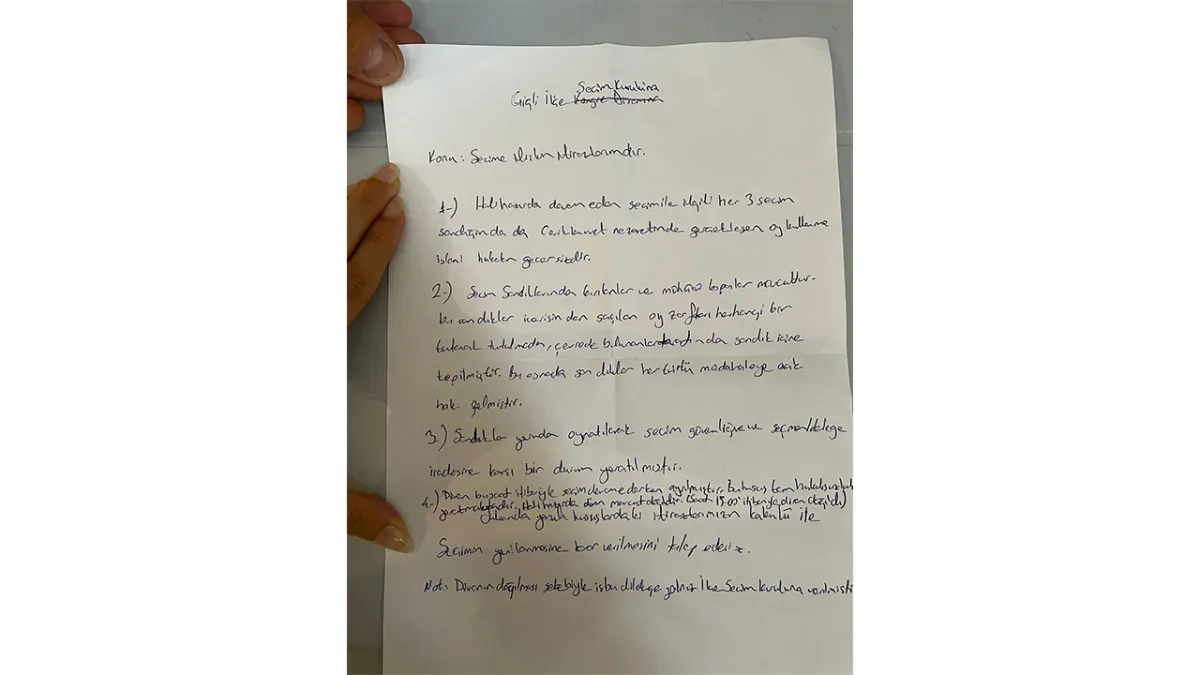 Seçim Kuruluna
Çiğli İlçe Kongre Divanına
Konu: Seçime ilişkin itirazlarımdır.
1-) Hali hazırda devam eden seçimile ilgili her 3 seçim
sandığında da Cevik kuvvet nezaretinde gerçekleşen oy kullanma
işlemi huküken geçersizdir.
2-) Seçim Sandıklarında kırıkenler ve mühürsüz mevcuttur.
bu sandıklar içerisinden saçılan oy zarfları herhangi bir
tutanak tutulmadan, çevrede bulunanlar tarafından da sandık içine
tepilmiştir. Bu esnada sandıklar her türlü müdahaleye açık
hale gelmiştir.
3-) Sandıklar yerinden oynatılarak seçim güvenliğine ve seçmen/delege
iradesine karşı bir durum yaratılmıştır.
4-) Divan bu saat itibariyle seçim devam ederken ayrılmıştır. bu husus tam
yaratmaktadır. Hali hazırda divan mevcut değildir. (Saat 15.00 itibariyle divan dağıldı)
Yukarıda yazılı hususlardaki itirazlarımızın kabulü ile
Seçimin yenilenmesine karar verilmesini talep ederiz.
Not: Divanın dağılması sebebiyle işbu dilekçe yalnız İlçe Seçim kuruluna verilmişti